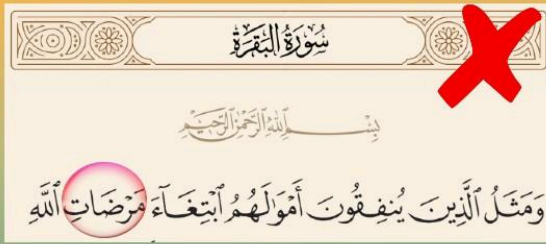 سُورَةُ البَقَرَةِ
بِسْمِ ٱللَّهِ ٱلرَّحْمَٰنِ ٱلرَّحِيمِ
وَمَثَلُ ٱلَّذِينَ يُنفِقُونَ أَمْوَٰلَهُمُ ٱبْتِغَآءَ مَرْضَاتِ ٱللَّهِ